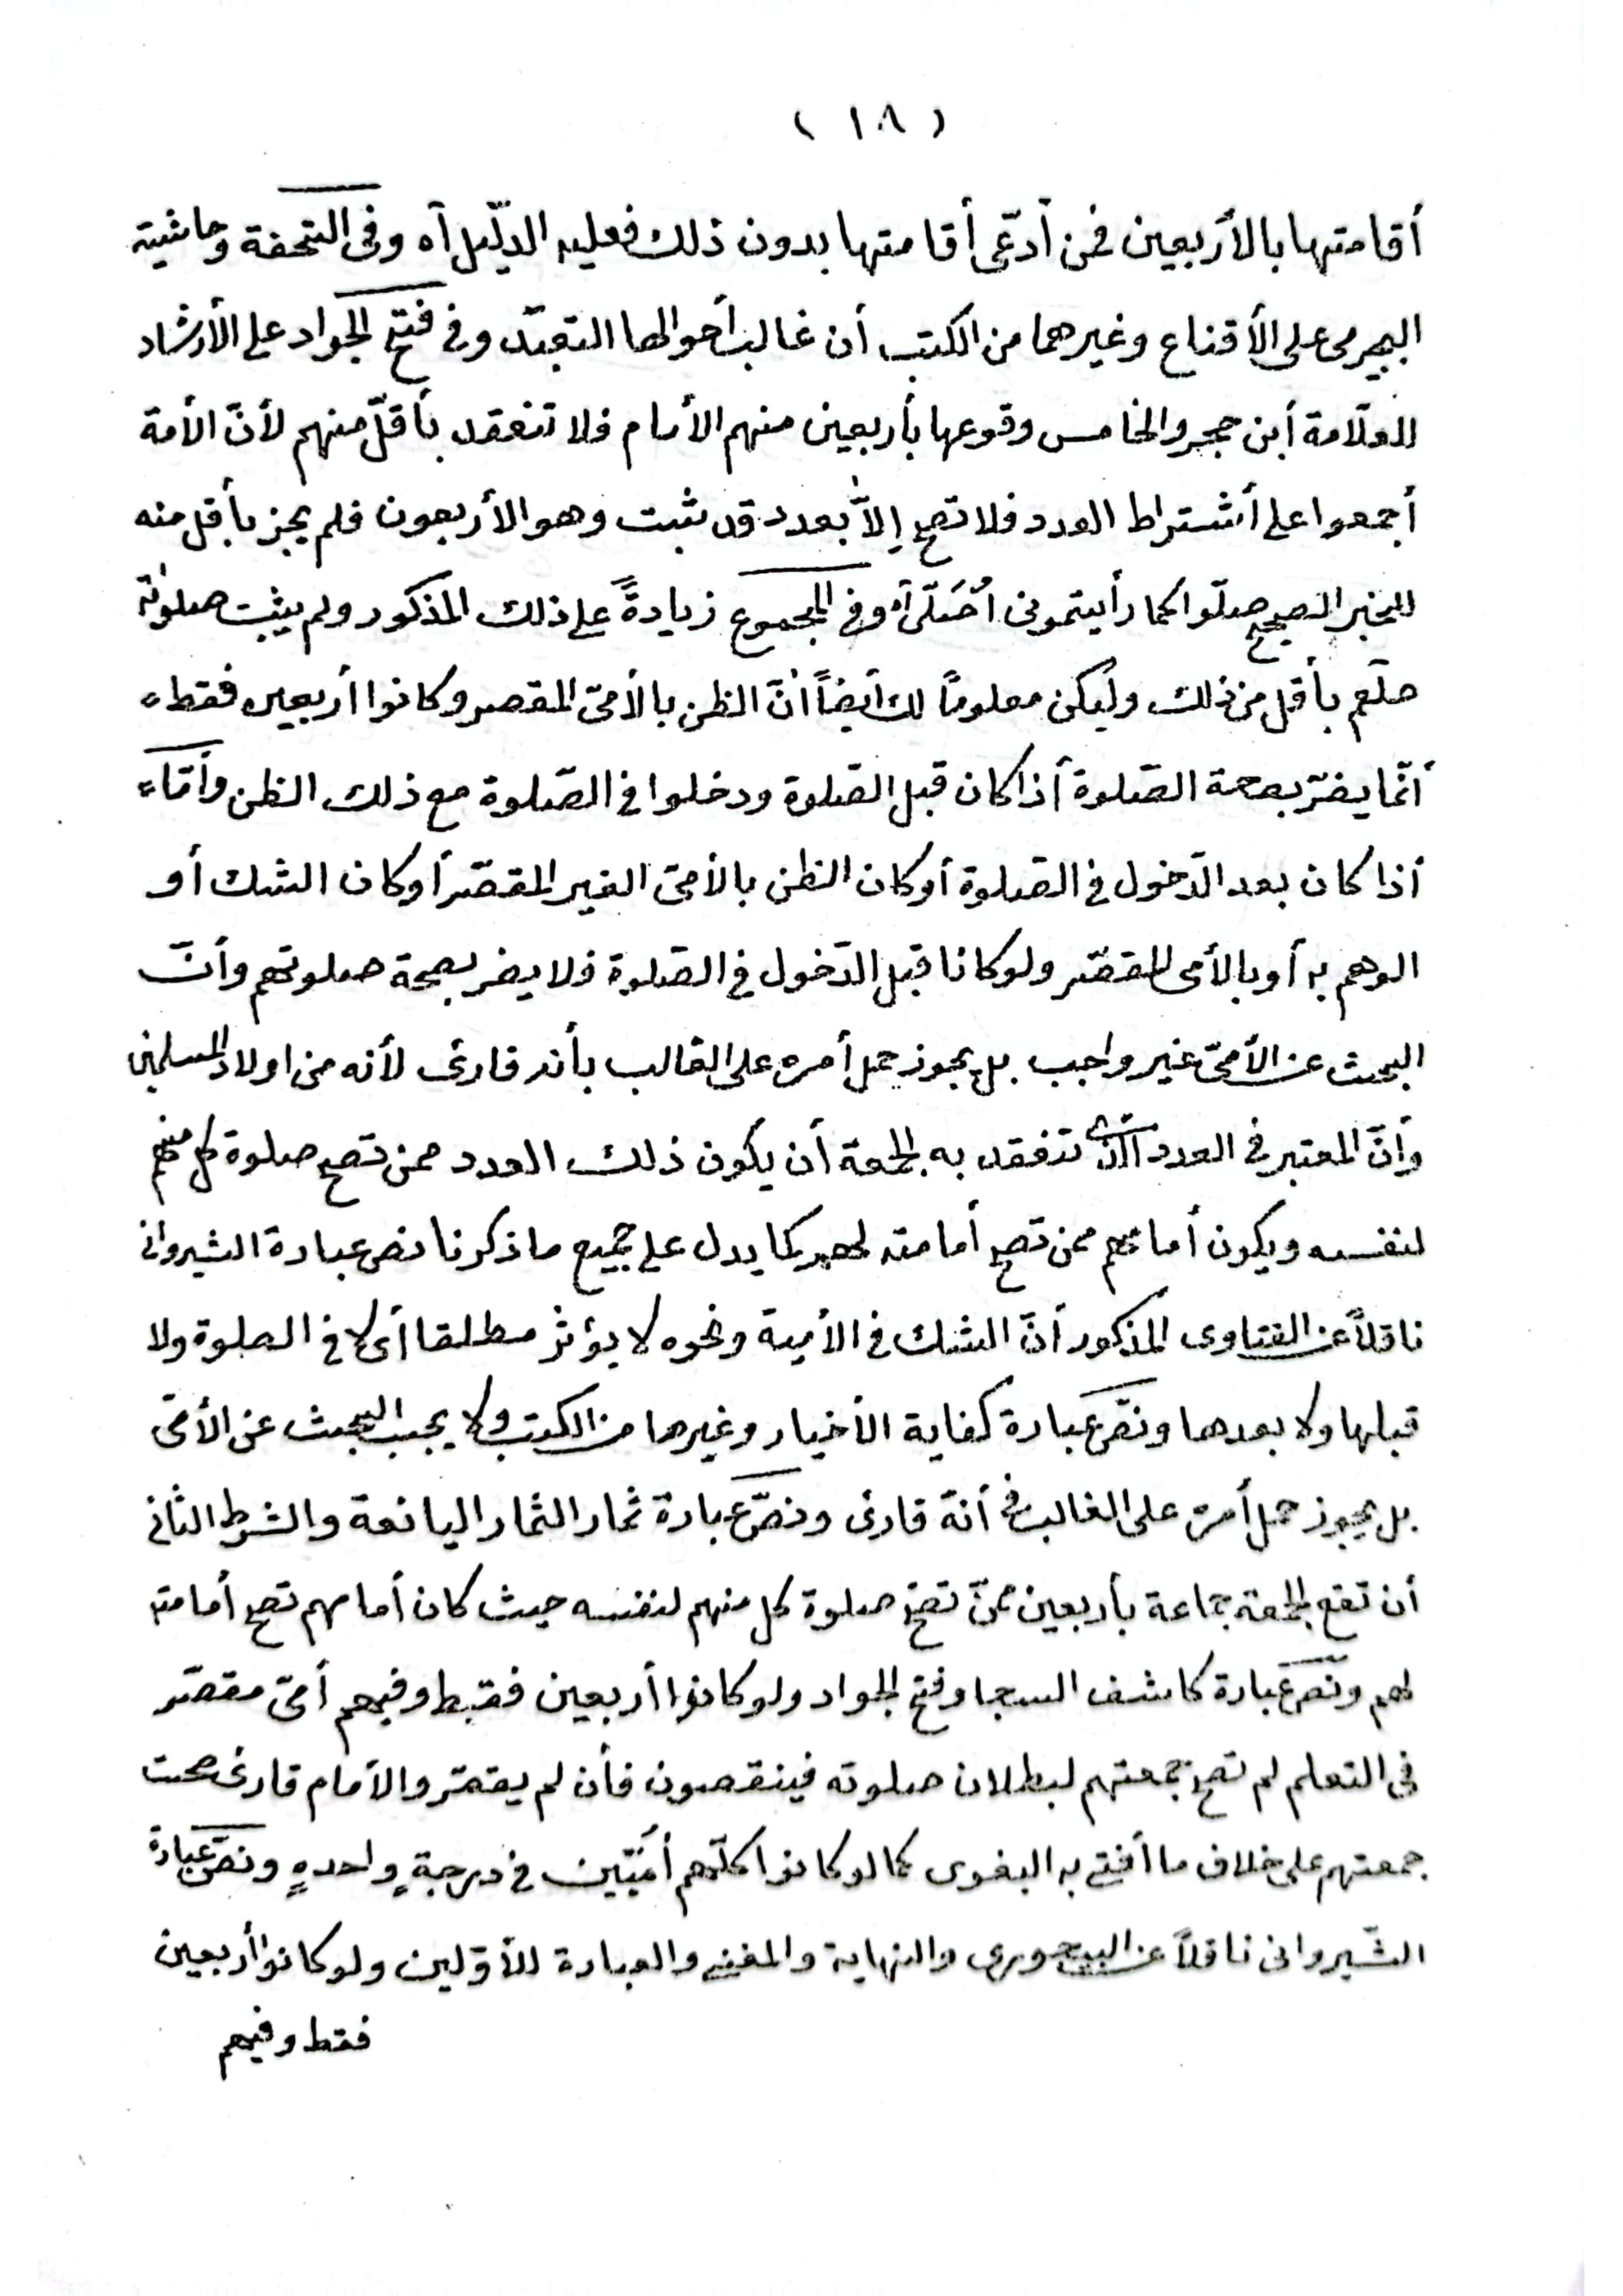 ( ١٨ )
أقامتها بالأربعين فمن أدّعى أقامتها بدون ذلك فعليه الدّليل آه وفى التحفة وحاشية
البجيرمى على الأقناع وغيرهما من الكتب أن غالب أحوالها التعبّد وفى فتح الجواد على الأرشاد
للعلّامة أبن حجر والخامس وقوعها بأربعين منهم الأمام فلا تنعقد بأقلّ منهم لأنّ الأمة
أجمعوا على أشتراط العدد فلا تصح إلّا بعدد قد ثبت وهو الأربعون فلم يجز بأقل منه
للخبر الصحيح صلّوا كما رأيتمونى أُصَلّى آه وفى المجموع زيادةً على ذلك المذكور ولم يثبت صلوته
صلّعم بأقل من ذلك وليكن معلومًا لك أيضاً أنّ الظن بالأمىّ المقصر وكانوا أربعين فقط
أنّما يضرّ بصحة الصّلوة أذا كان قبل الصّلوة ودخلوا فى الصّلوة مع ذلك الظن وأمّا
أذا كان بعد الدّخول فى الصّلوة أو كان الظن بالأمىّ الغير المقصّر أو كان الشك أو
الوهم به أو بالأمى المقصّر ولو كانا قبل الدّخول فى الصّلوة فلا يضر بصحة صلوتهم وأنّ
البحث عن الأمىّ غير واجب بل يجوز حمل أمره على الغالب بأنه قارئ لأنه من اولاد المسلمين
وأنّ المعتبر فى العدد الذى تنعقد به الجمعة أن يكون ذلك العدد ممن تصح صلوة كل منهم
لنفسه ويكون أمامهم ممن تصح أمامته لهم كما يدل على جميع ما ذكرنا نص عبارة الشيروانى
ناقلاً عن الفتاوى المذكور أنّ الشك فى الأمية ونحوه لا يؤثر مطلقا أى لا فى الصلوة ولا
قبلها ولا بعدها ونصّ عبارة كفاية الأخيار وغيرها من الكتب ولا يجب البحث عن الأمىّ
بل يجوز حمل أمره على الغالب فى أنهّ قارئ ونصّ عبارة ثمار الثمار اليانعة والشرط الثانى
أن تقع الجمعة جماعة بأربعين ممنّ تصحّ صلوة كل منهم لنفسه حيث كان أمامهم تصح أمامته
لهم ونصّ عبارة كاشف السجا وفتح الجواد ولو كانوا أربعين فقط وفيهم أمىّ مقصّر
فى التعلم لم تصحّ جمعتهم لبطلان صلوته فينقصون فأن لم يقصّر والأمام قارئ صحت
جمعتهم على خلاف ما أفتى به البغوى كما لو كانوا كلّهم أمّيّين فى درجةٍ واحدهٍ ونصّ عبارة
الشّيروانى ناقلاً عن البيجورى والنهاية والمغنى والعبارة للأوّلين ولو كانوا أربعين
فقط وفيهم